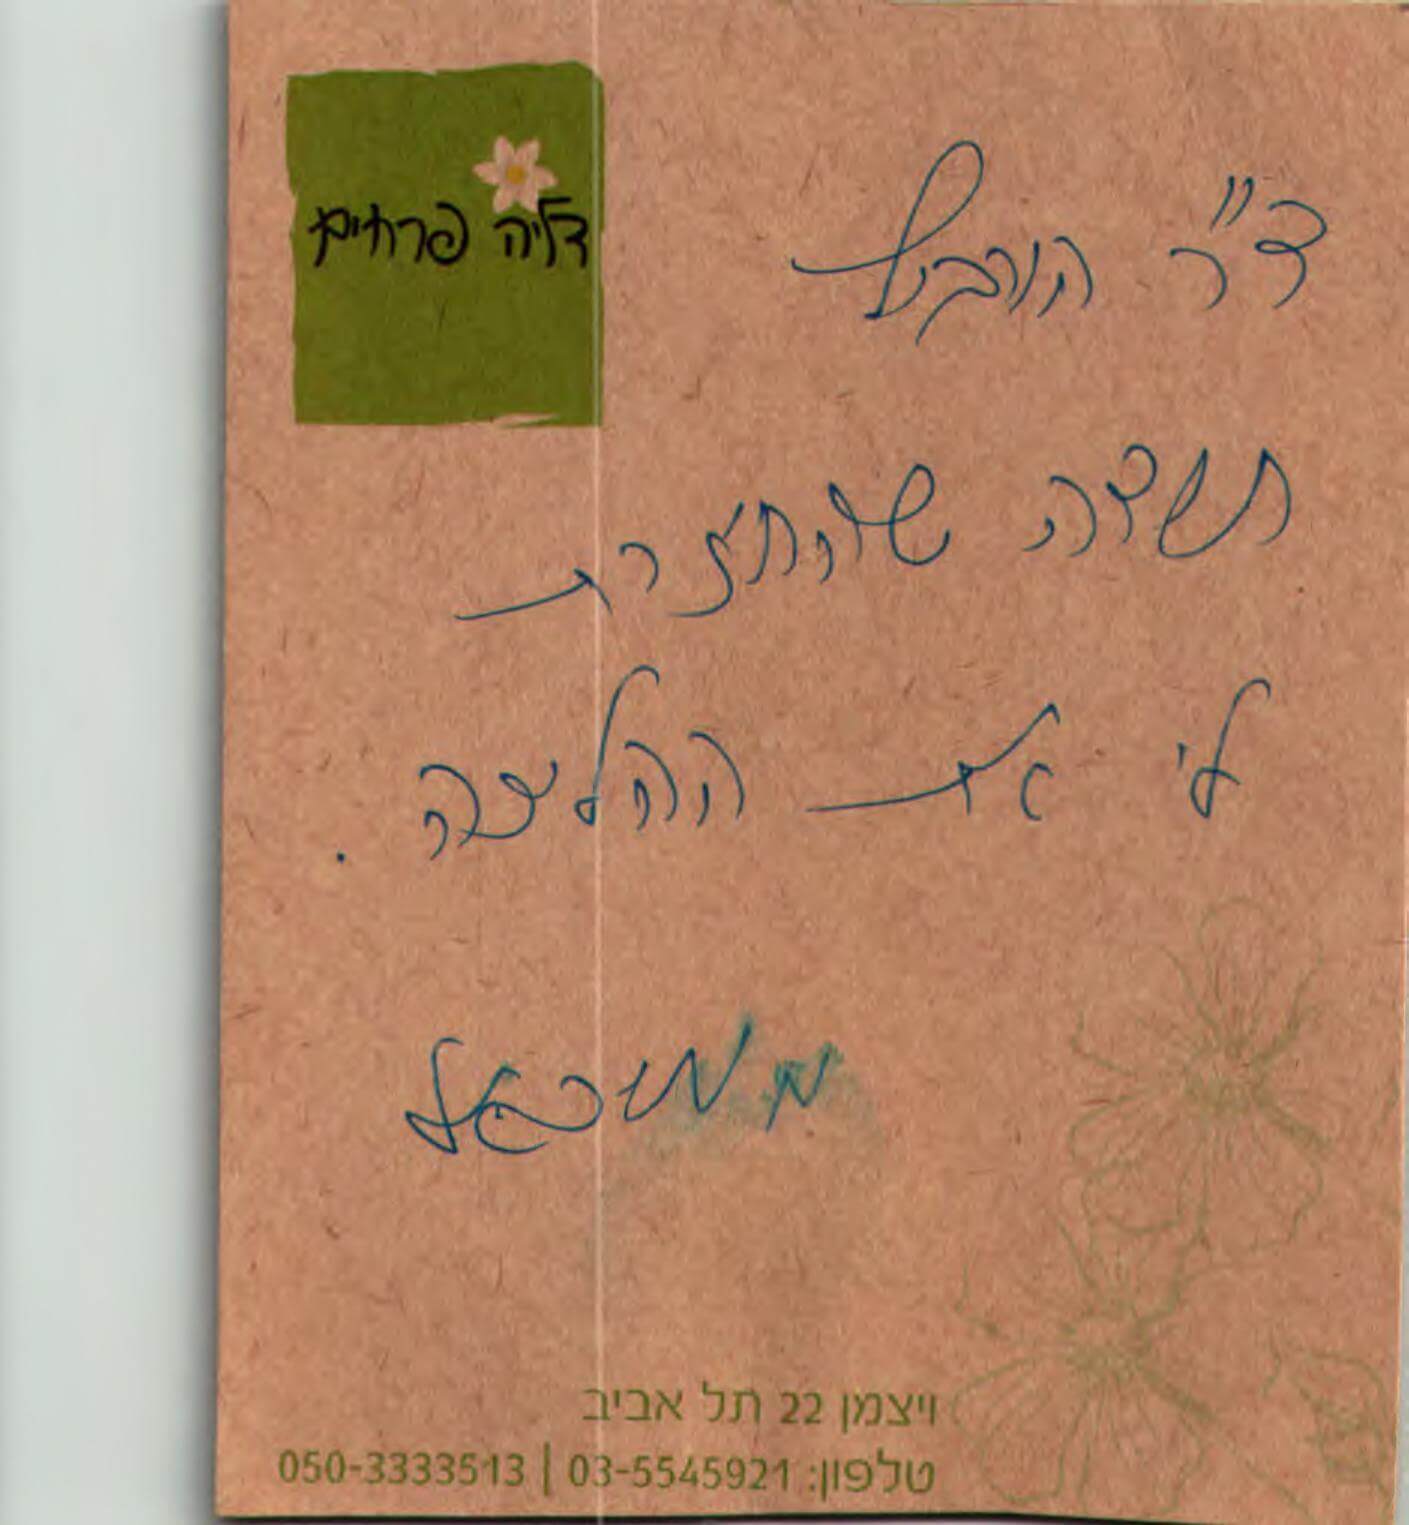 דליה פרחים
ד"ר הורביץ
תודה שהחזרת
לי את ההליכה .
ממיכאל
ויצמן 22 תל אביב
טלפון: 03-5545921 | 050-3333513